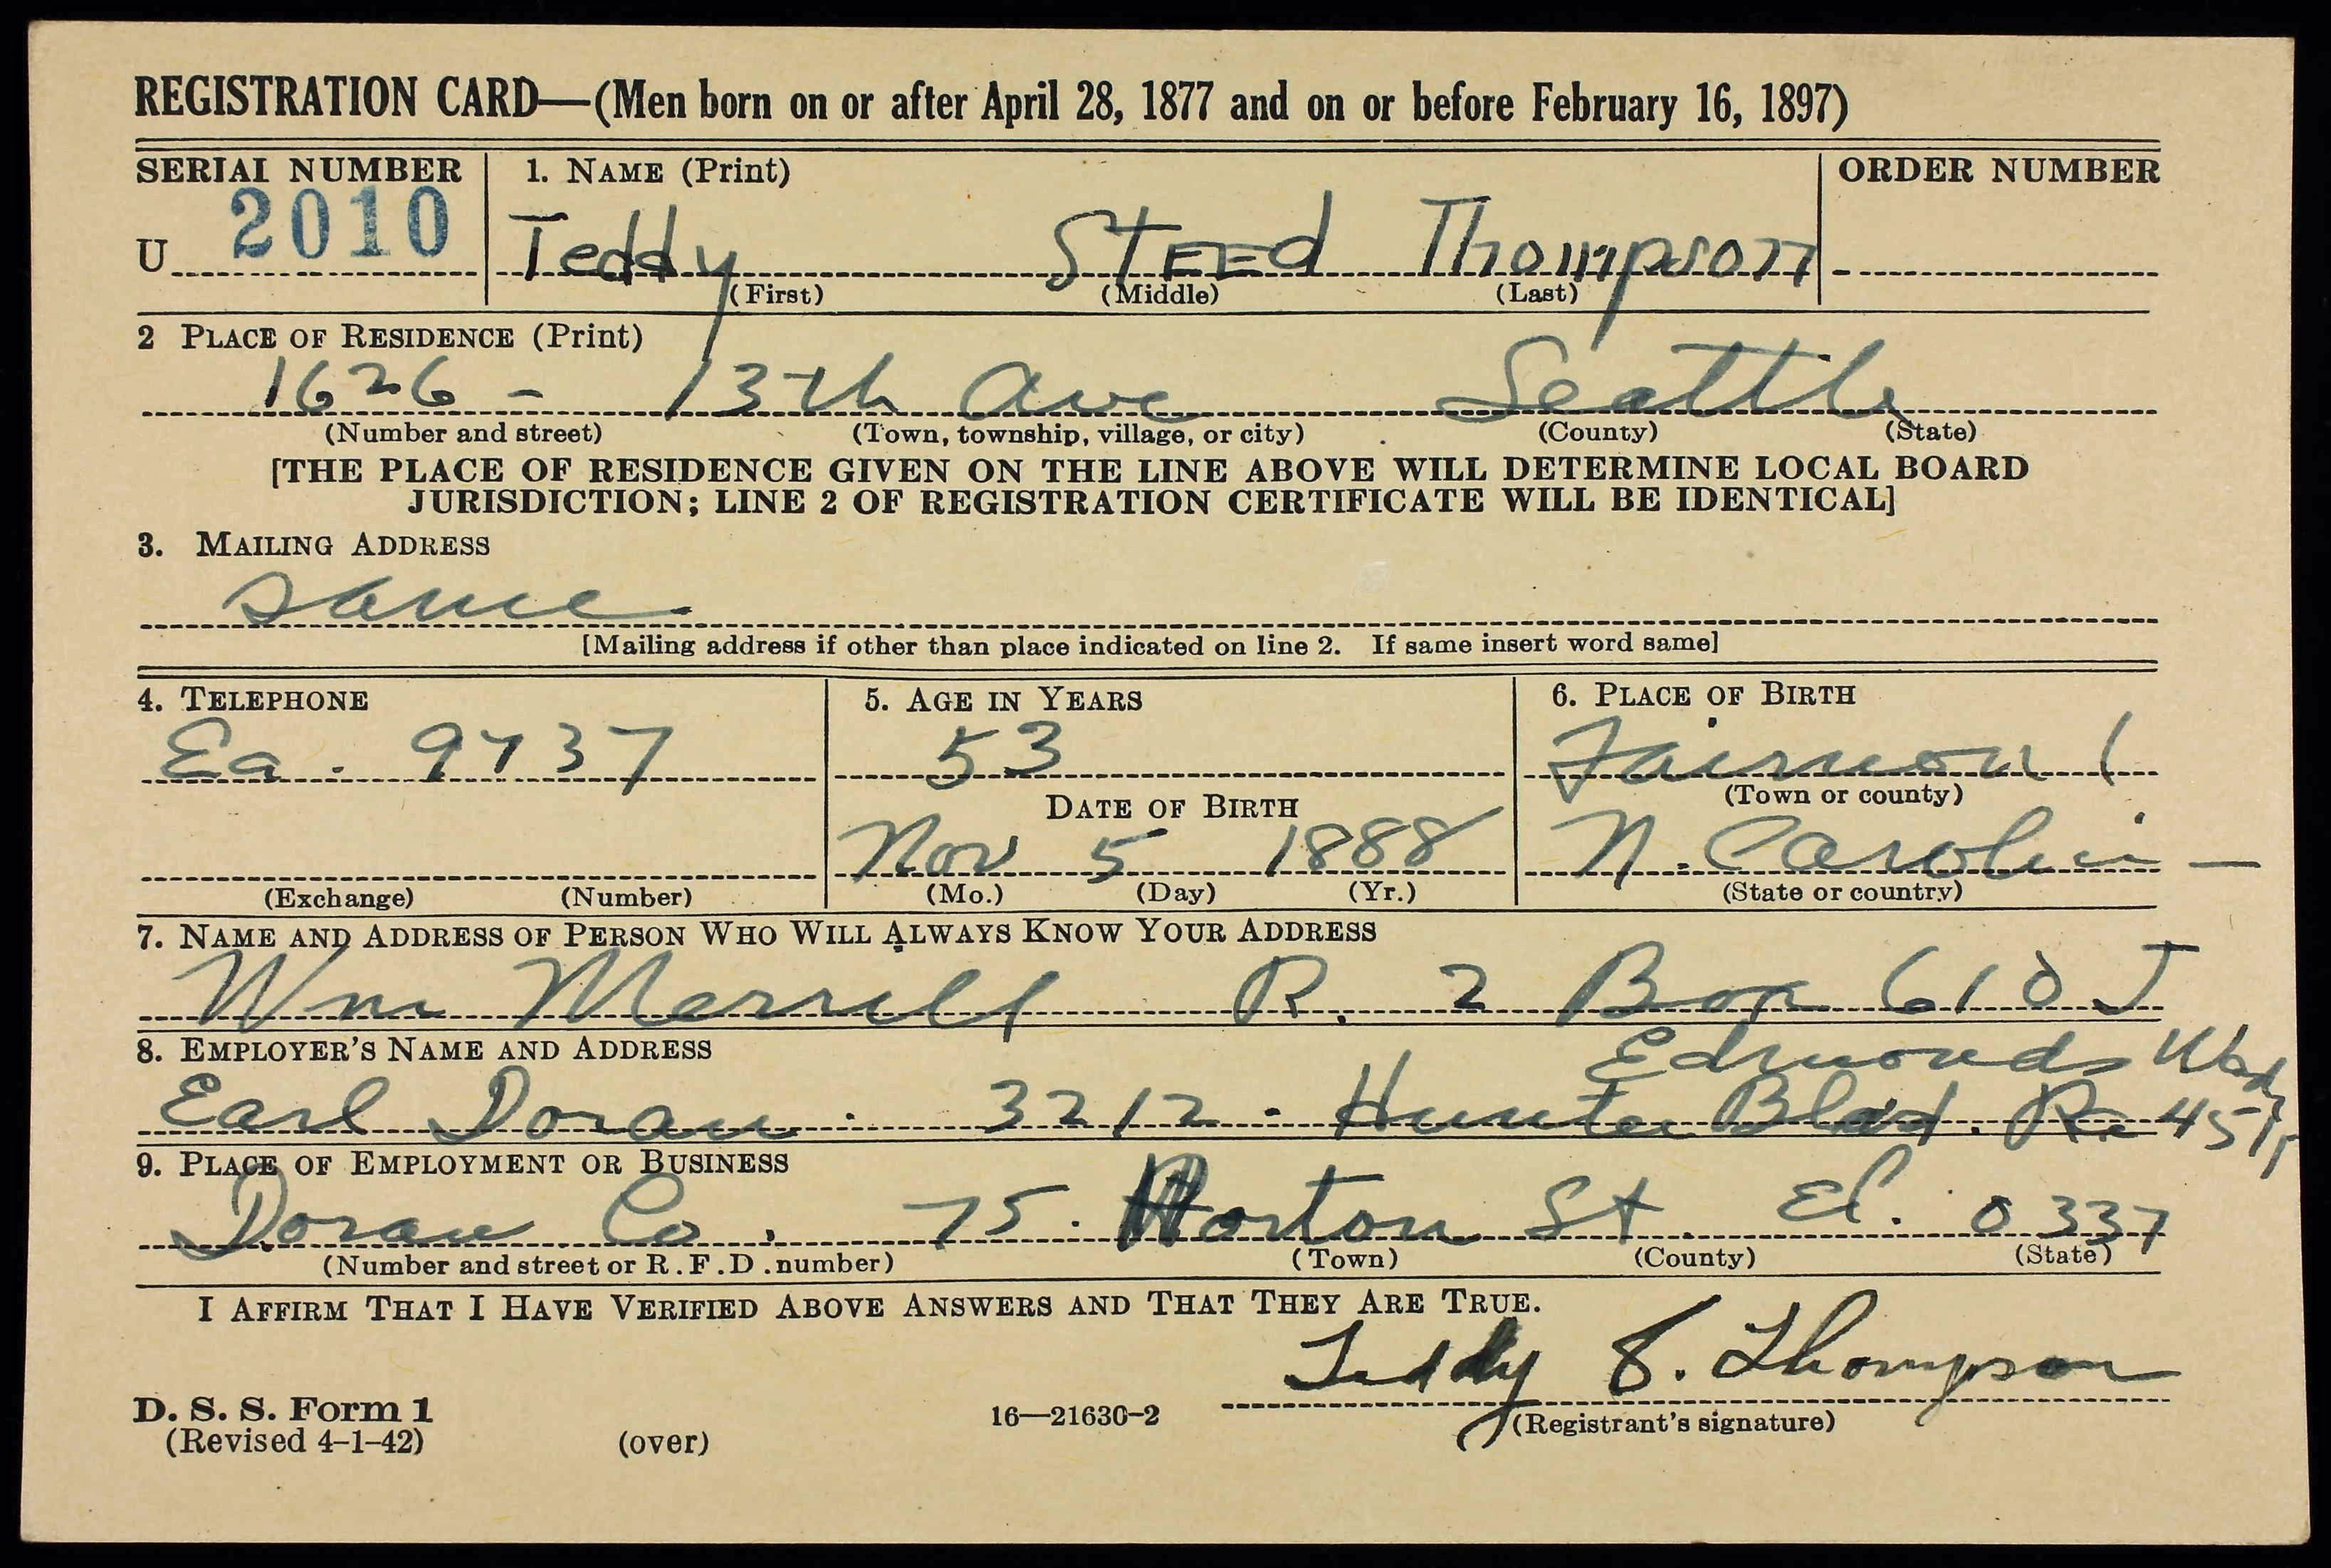 REGISTRATION CARD—(Men born on or after April 28, 1877 and on or before February 16, 1897)
SERIAL NUMBER 1. NAME (Print) ORDER NUMBER
U 2010 Teddy STEEd Thompson
(First) (Middle) (Last)
2 PLACE OF RESIDENCE (Print)
1626 - 13th Ave Seattle
(Number and street) (Town, township, village, or city) (County) (State)
[THE PLACE OF RESIDENCE GIVEN ON THE LINE ABOVE WILL DETERMINE LOCAL BOARD
JURISDICTION; LINE 2 OF REGISTRATION CERTIFICATE WILL BE IDENTICAL]
3. MAILING ADDRESS
Same
[Mailing address if other than place indicated on line 2. If same insert word same]
4. TELEPHONE 5. AGE IN YEARS 6. PLACE OF BIRTH
Ea. 9737 53 Fairmont
DATE OF BIRTH (Town or county)
Nov 5 1888 N. Carolina
(Exchange) (Number) (Mo.) (Day) (Yr.) (State or country)
7. NAME AND ADDRESS OF PERSON WHO WILL ALWAYS KNOW YOUR ADDRESS
Wm Merrill R. 2 Box 610 J
8. EMPLOYER'S NAME AND ADDRESS Edmonds Wash
Earl Doran. 3212 - Hunter Blvd.
9. PLACE OF EMPLOYMENT OR BUSINESS
Doran Co. 75. Horton St. El. 0337
(Number and street or R.F.D. number) (Town) (County) (State)
I AFFIRM THAT I HAVE VERIFIED ABOVE ANSWERS AND THAT THEY ARE TRUE.
Teddy S. Thompson
D. S. S. Form 1 16—21630-2 (Registrant's signature)
(Revised 4-1-42) (over)